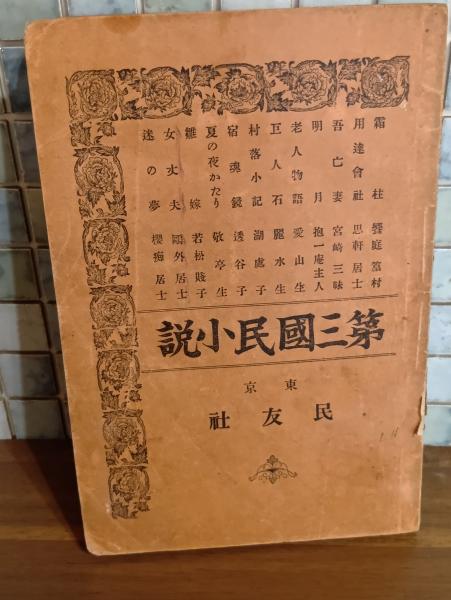 霜柱 饗庭篁村
用達會社 思軒居士
吾亡妻 宮崎三昧
明月 抱一庵主人
老人物語 愛山生
巨人石 麗水生
村落小記 湖處子
宿魂鏡 透谷子
夏の夜がたり 敬亭生
雛嫁 若松賤子
女丈夫 鷗外居士
迷の夢 櫻痴居士
第三國民小説
東京
民友社